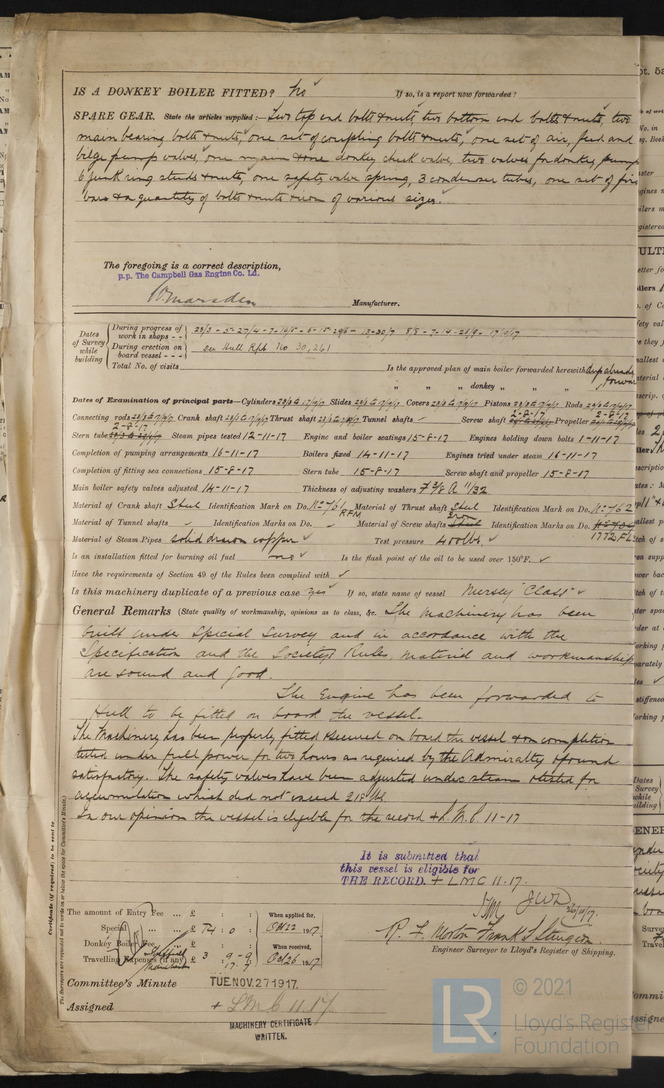 IS A DONKEY BOILER FITTED? No If so, is a report now forwarded?
SPARE GEAR. State the articles supplied:— Two top end bolts & nuts, two bottom end bolts & nuts, two
main bearing bolts & nuts, one set of coupling bolts & nuts, one set of air, feed and
bilge pump valves, one main & one donkey check valve, two valves for donkey pump
6 junk ring studs & nuts, one safety valve spring, 3 condenser tubes, one set of fire
bars & a quantity of bolts & nuts & iron of various sizes.
The foregoing is a correct description,
p.p. The Campbell Gas Engine Co. Ld.
W. Marsden Manufacturer.
Dates of Survey while building
During progress of work in shops - -
During erection on board vessel - - - See Hull Rpt No 30,261
Total No. of visits
Is the approved plan of main boiler forwarded herewith
" " " donkey " " "
Dates of Examination of principal parts—Cylinders Slides Covers Pistons Rods
Connecting rods Crank shaft Thrust shaft Tunnel shafts Screw shaft 2-8-17 Propeller 2-8-17
Stern tube 2-8-17 Steam pipes tested 12-11-17 Engine and boiler seatings 15-8-17 Engines holding down bolts 1-11-17
Completion of pumping arrangements 16-11-17 Boilers fixed 14-11-17 Engines tried under steam 16-11-17
Completion of fitting sea connections 15-8-17 Stern tube 15-8-17 Screw shaft and propeller 15-8-17
Main boiler safety valves adjusted 14-11-17 Thickness of adjusting washers F 3/8 A 11/32
Material of Crank shaft Steel Identification Mark on Do. No 761 RFM Material of Thrust shaft Steel Identification Mark on Do. No 762
Material of Tunnel shafts Identification Marks on Do. Material of Screw shafts Iron Identification Marks on Do. 1772 FLS
Material of Steam Pipes solid drawn copper Test pressure 400 lbs.
Is an installation fitted for burning oil fuel no Is the flash point of the oil to be used over 150°F.
Have the requirements of Section 49 of the Rules been complied with
Is this machinery duplicate of a previous case yes If so, state name of vessel Mersey "Class"
General Remarks (State quality of workmanship, opinions as to class, &c. The machinery has been
built under Special Survey and in accordance with the
Specification and the Society's Rules material and workmanship
are sound and good.
The Engine has been forwarded to
Hull to be fitted on board the vessel.
The Machinery has been properly fitted & secured on board the vessel & on completion
tested under full power for two hours as required by the Admiralty & found
satisfactory. The safety valves have been adjusted under steam & tested for
accumulation which did not exceed 218 lbs.
In our opinion the vessel is eligible for the record + L.M.C 11-17
It is submitted that
this vessel is eligible for
THE RECORD. + LMC 11.17.
Certificate (if required) to be sent to
The amount of Entry Fee ... £ : : When applied for,
Special ... £ 74 : 0 : Oct 22 1917
Donkey Boiler Fee ... £ : : When received,
Travelling Expenses (if any) £ 3 9 - 9 Oct 26 1917
R. F. Morton Frank L Sturgeon
Engineer Surveyor to Lloyd's Register of Shipping.
Committee's Minute TUE. NOV. 27 1917.
Assigned + LMC 11.17.
MACHINERY CERTIFICATE
WRITTEN.
LR © 2021
Lloyd's Register
Foundation